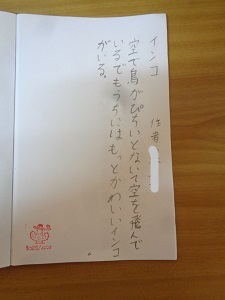 インコ
作者
空で鳥がぴちいとないて空を飛んで
いるでもうちにはもっとかわいいインコ
がいる。